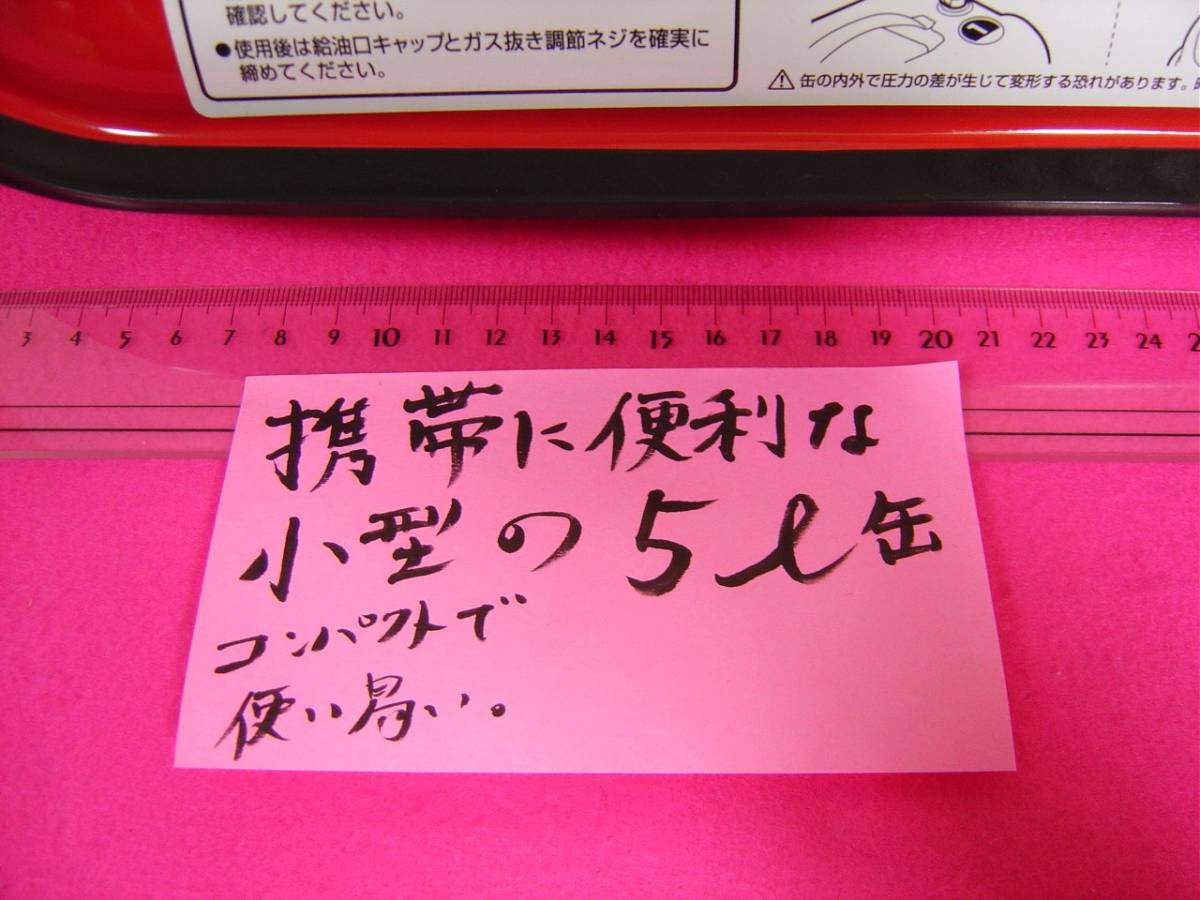 確認してください。
●使用後は給油口キャップとガス抜き調節ネジを確実に
締めてください。
1
⚠缶の内外で圧力の差が生じて変形する恐れがあります。
3 4 5 6 7 8 9 10 11 12 13 14 15 16 17 18 19 20 21 22 23 24
携帯に便利な
小型の5ℓ缶
コンパクトで
使い易い。